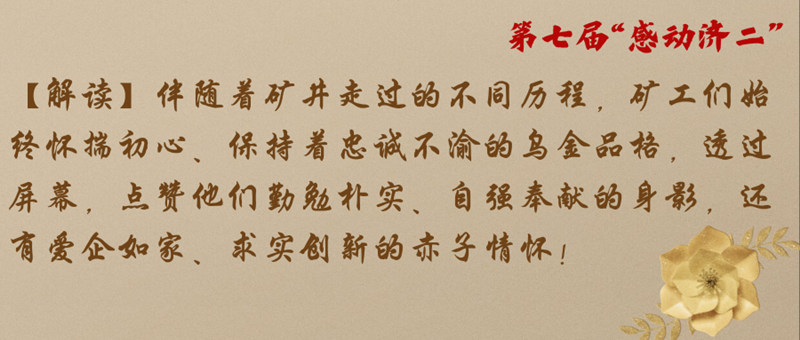 第七届“感动济二”
【解读】伴随着矿井走过的不同历程，矿工们始
终怀揣初心、保持着忠诚不渝的乌金品格，透过
屏幕，点赞他们勤勉朴实、自强奉献的身影，还
有爱企如家、求实创新的赤子情怀！